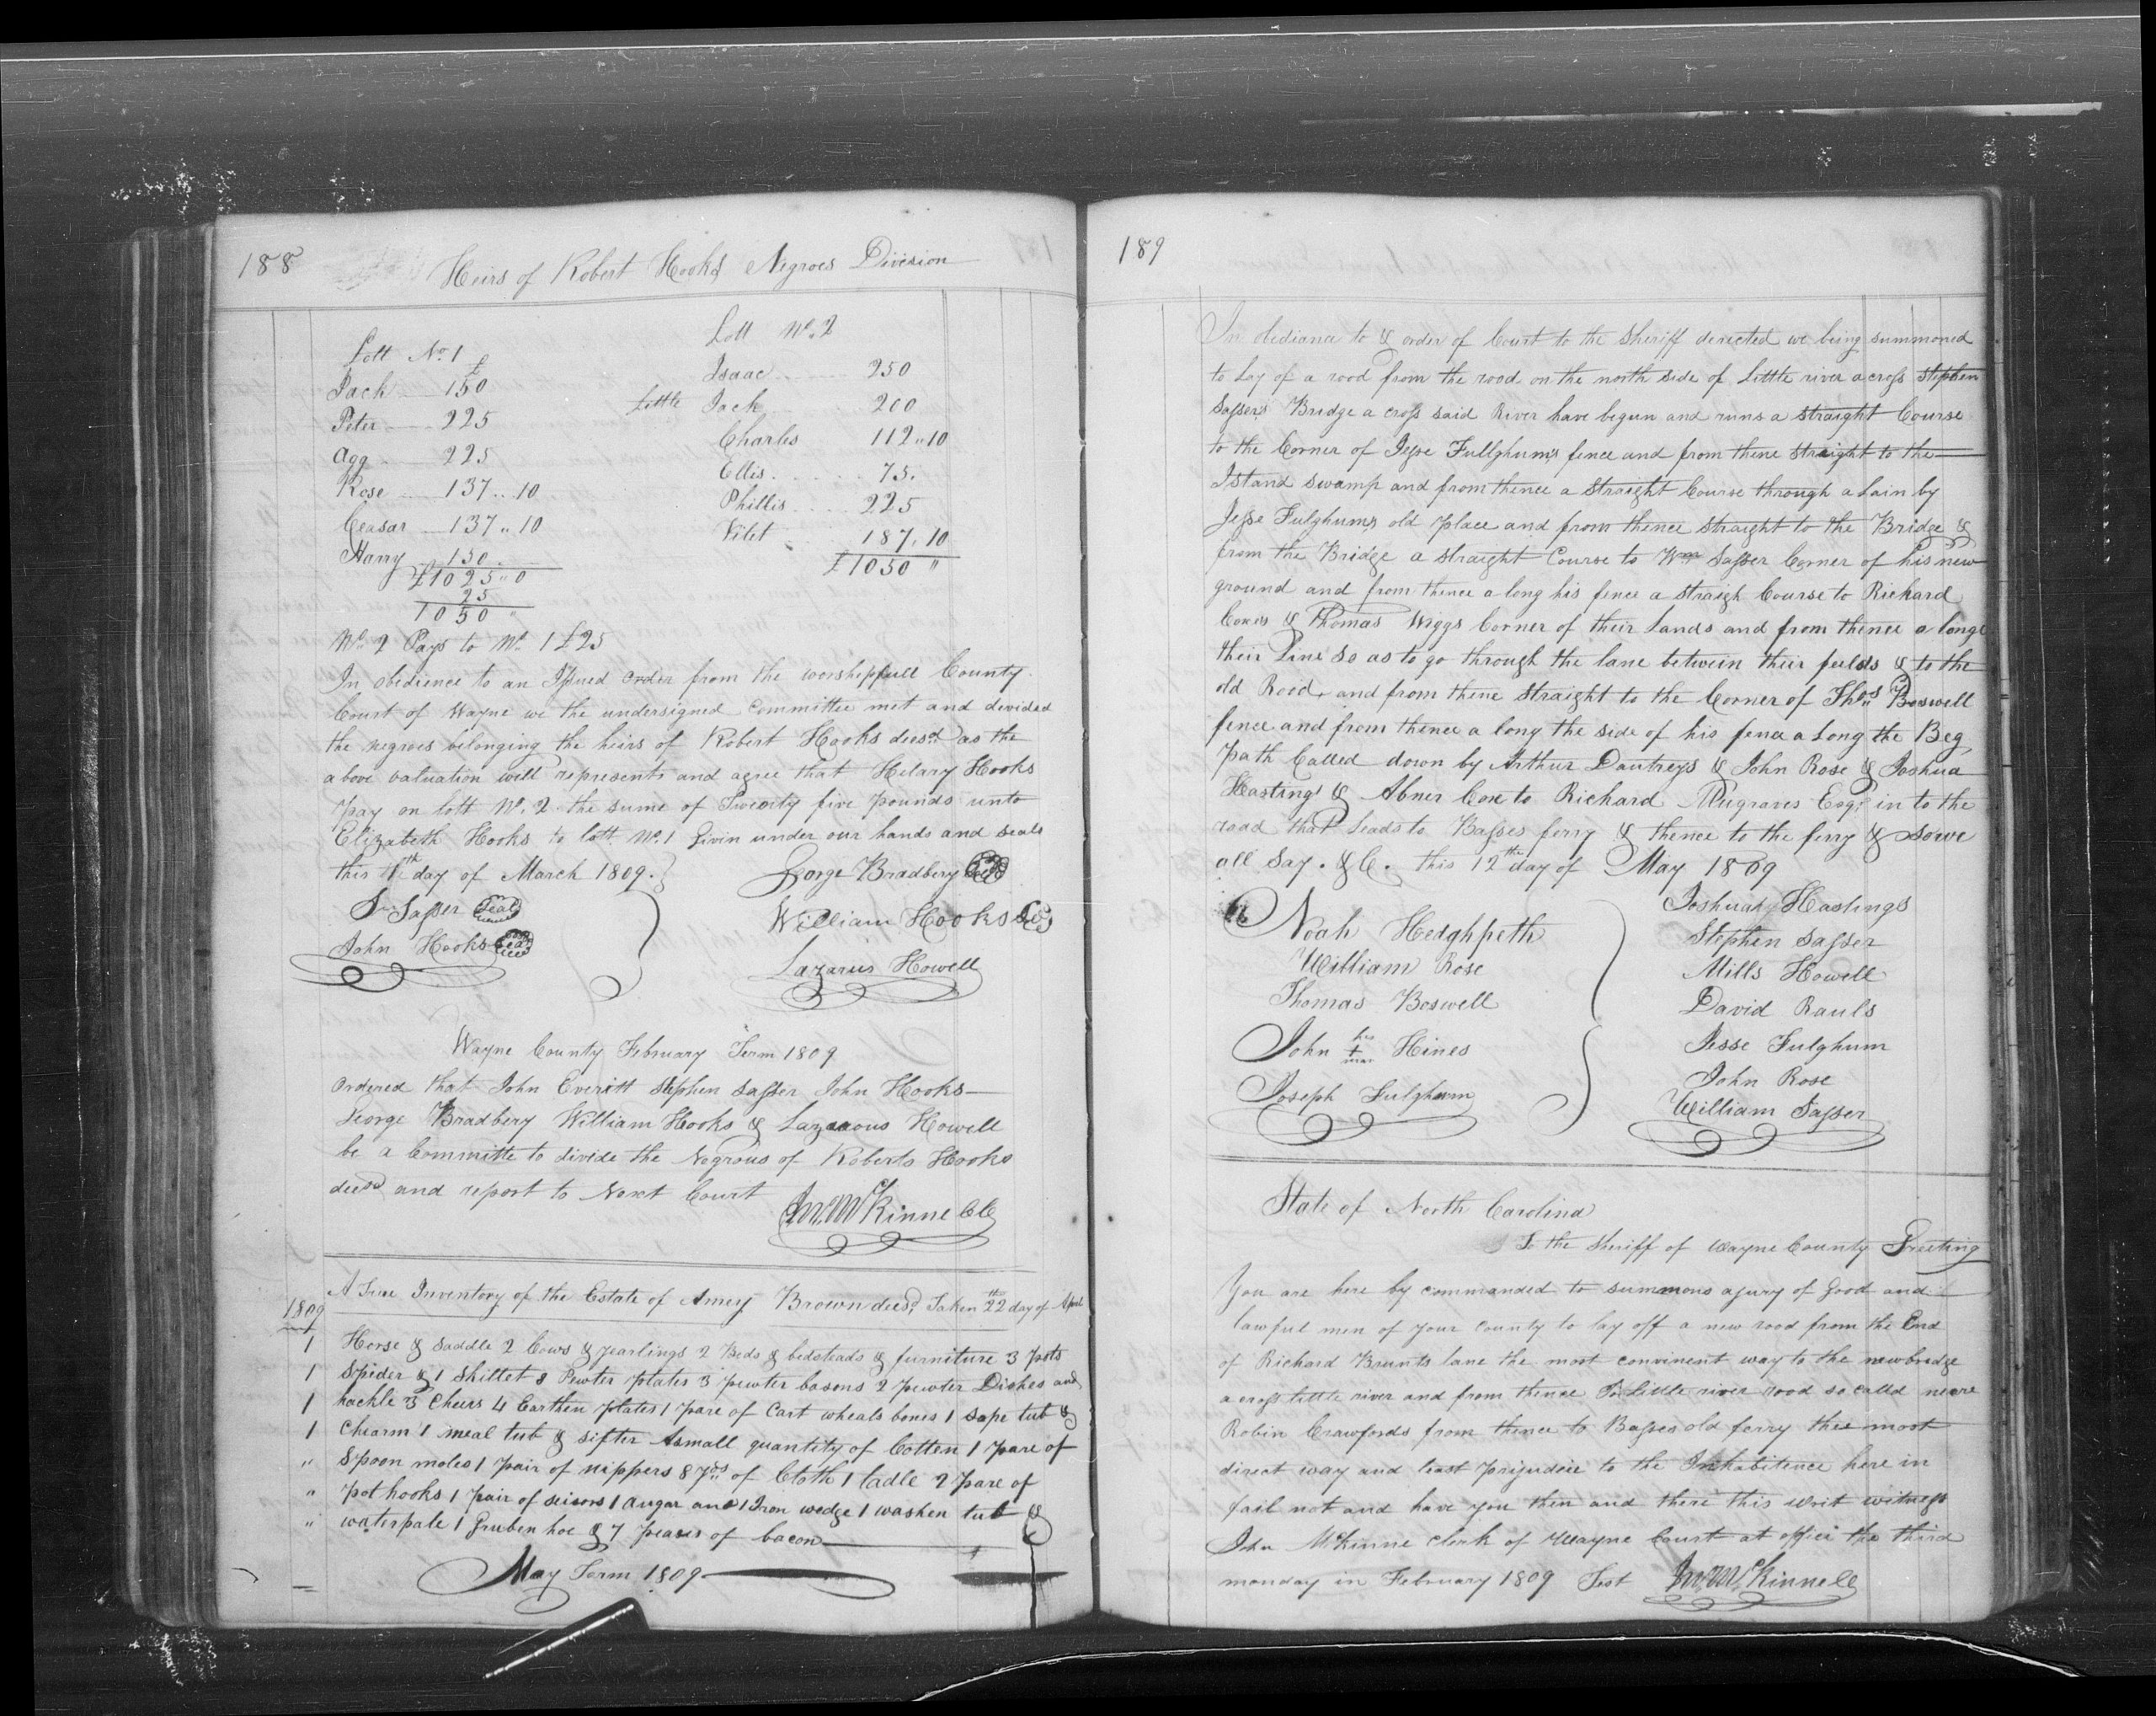 188
Heirs of Robert Hooks Negroes Division
Lott No. 1
£
Jack 150
Peter 225
Agg 225
Rose 137 .. 10
Ceasar 137 .. 10
Harry 150
£1025 " 0
25
1050 "
Lott No. 2
Isaac 250
Little Jack 200
Charles 112 .. 10
Ellis 75.
Phillis 225
Vilet 187 . 10
£1050 "
No. 2 Pays to No. 1 £25
In obedience to an Issued order from the worshipfull County
Court of Wayne we the undersigned Committee met and devided
the negroes belonging the heirs of Robert Hooks decsd as the
above valuation will represents and agree that Hilary Hooks
pay on lott No. 2 the sume of Twenty five pounds unto
Elizabeth Hooks to lott No. 1 Givin under our hands and seals
this day of March 1809.
George Bradbery Seal
Sasser Seal
William Hooks Seal
John Hooks Seal
Lazarus Howell
Wayne County February Term 1809
Ordered that John Everitt Stephen Sasser John Hooks
George Bradbery William Hooks & Lazarous Howell
be a Committe to divide the Negrous of Roberts Hooks
decsd and report to Next Court
Jno. McKinne CC
A True Inventory of the Estate of Amey Brown decsd Taken 22th day of April
1809
1 Horse & Saddle 2 Cows & yearlings 2 Beds & bedsteads & furniture 3 pots
1 Spider & 1 Skillet 8 Pewter plates 3 pewter basons 2 pewter Dishes and
1 hackle 3 Cheirs 4 Earthen plates 1 pare of Cart wheals bones 1 sope tub &
1 Chearn 1 meal tub & sifter Asmall quantity of Cotten 1 pare of
" Spoon moles 1 pair of nippers 8 yds of Cloth 1 ladle 2 pare of
" pot hooks 1 pair of seisors 1 augar and 1 Iron wedge 1 washen tub &
" waterpale 1 Gruben hoe & 7 peases of bacon
May Term 1809
189
In obediance to & order of Court to the Sheriff derected we being summoned
to Lay of a rood from the rood on the north side of Little river across Stephen
Sassers Bridge a cross said River have begun and runs a straight Course
to the Corner of Jesse Fullghums fence and from thene straight to the
Island swamp and from thence a straight Course through a Lain by
Jesse Fulghums old place and from thence straight to the Bridge &
from the Bridge a straight Course to Wm Sasser Corner of his new
ground and from thence a long his fence a straigh Course to Richard
Coxes & Thomas Wiggs Corner of their Lands and from thence a longe
their Line so as to go through the lane betwein their feilds & to the
old Rood, and from thene straight to the Corner of Thos Boswell
fence and from thence a long the side of his fence a Long the Beg
Path Called down by Arthur Dautreys & John Rose & Joshua
Hastings & Abner Coxe to Richard Musgraves Esqr in to the
road that Leads to Basses ferry & thence to the ferry & so we
all Say . &C. this 12th day of May 1809
Joshuah Hastings
Noah Hedghpeth
Stephen Sasser
William Rose
Mills Howell
Thomas Boswell
David Rauls
John his + mar Hines
Jesse Fulghum
John Rose
Joseph Fulghum
William Sasser
State of North Carolina
To the Sheriff of Wayne County Greeting
You are here by commanded to summons a jury of Good and
lawful men of your county to lay off a new rood from the End
of Richard Brunts lane the most convinent way to the newbridge
a cross little river and from thence To Little river rood so called neare
Robin Crawfords from thence to Basses old ferry the most
direct way and least prejudice to the Inhabitence here in
fail not and have you then and there this writ witness
John McKinne Clerk of Wayne Court at office the third
monday in February 1809 Test Jno. McKinne CC